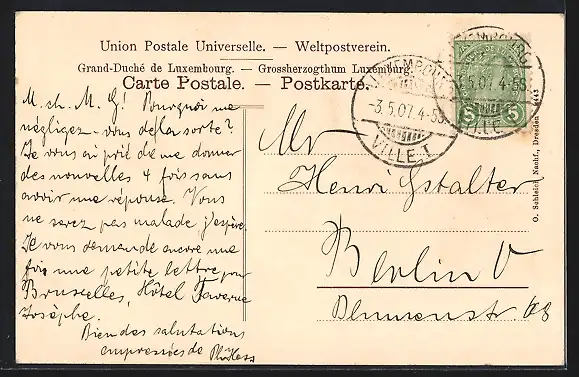 Union Postale Universelle. — Weltpostverein.
Grand-Duché de Luxembourg. — Grossherzogthum Luxemburg.
Carte Postale. — Postkarte.
M. ch. M. G! Bourquoi me
négligez-vous de la sorte?
Je vous ai prié de me donner
des nouvelles 4 fois sans
avoir une réponse. Vous
ne serez pas malade j'espère.
Je vous demande encore une
fois une petite lettre pour
Bruxelles, Hôtel Taverne
Josephe.
Bien des salutations
empressées de
Mr
Henri Gstalter
Berlin O
Blumenstr 68
LUXEMBOURG
-3.5.07. 4-5S
VILLE. T
LUXEMBOURG
3.5.07. 4-5S
VILLE
5 5
O. Schleich Nachf., Dresden 4443